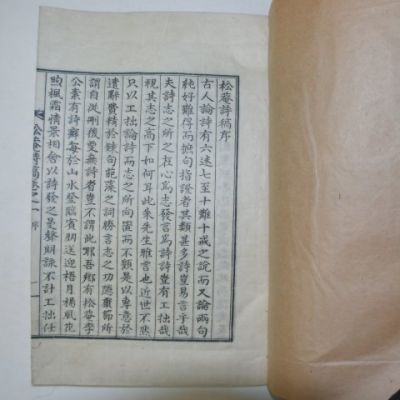 松菴詩稿序
古人論詩有六迷七至十難十戒之說而又論兩句
純好難得而摭句指證者其類甚多詩豈易言乎哉
夫詩志之所之在心爲志發言爲詩詩豈有工拙哉
視其志之高下如何耳此朱先生雅言也近世不然
只以工拙論詩而志之所向置而不顧是以專意於
遣辭費精於鍊句範藻之詞勝言志之功隨爾節所
謂自刪後更無詩者豈不謂此耶吾鄕有松菴李
公素有詩癖每於山水登臨賓朋送迎梧月楊風花
煦楓霜情景相會以詩發之曼聲朗詠不計工拙任
松菴詩稿卷之一 序